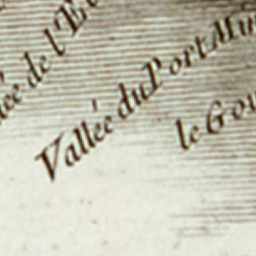 ée de l'E
Vallée du Port Mu
le Go